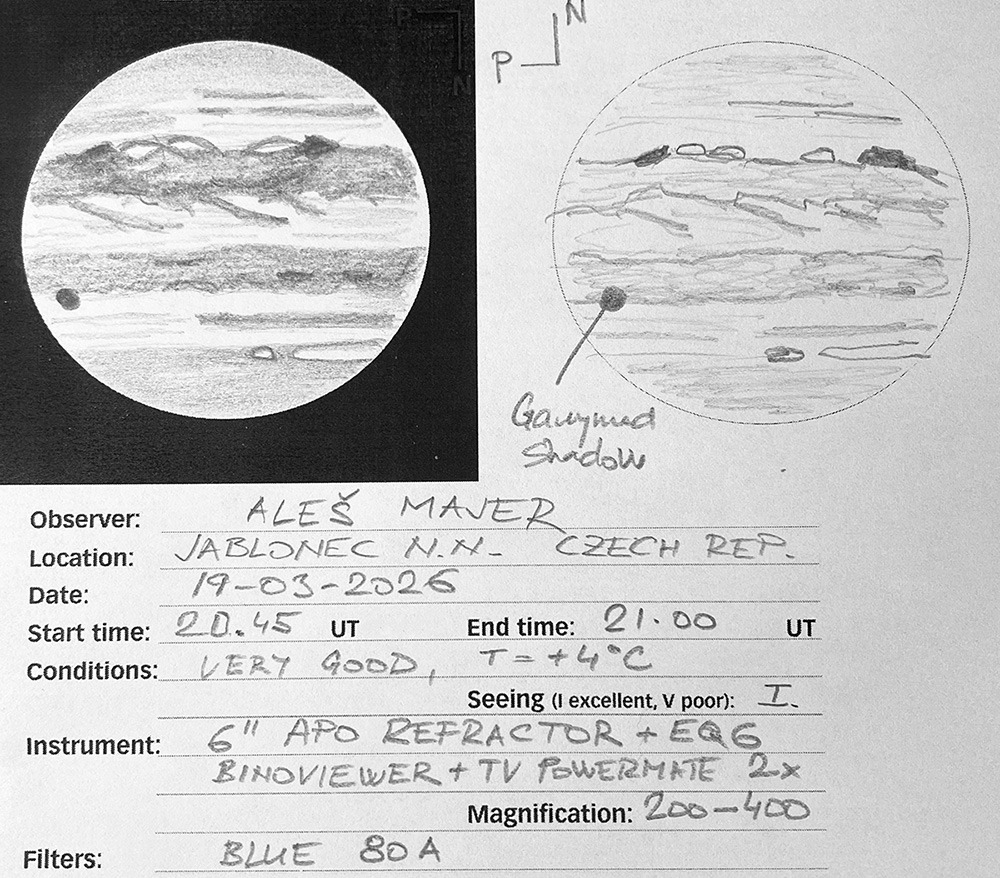 P
N
N
P
Ganymed
shadow
Observer: ALEŠ MAJER
Location: JABLONEC N.N. CZECH REP.
Date: 19-03-2026
Start time: 20.45 UT End time: 21.00 UT
Conditions: VERY GOOD, T = +4°C
Seeing (I excellent, V poor): I.
Instrument: 6" APO REFRACTOR + EQ6
BINOVIEWER + TV POWERMATE 2x
Magnification: 200-400
Filters: BLUE 80A